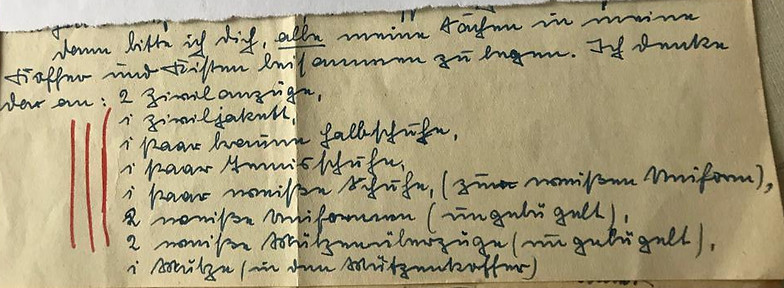 dann bitte ich dich, alle meine Sachen in meine
Koffer und Kisten beisammen zu legen. Ich denke
dar an: 2 Zivilanzüge,
1 Ziviljakett,
1 Paar braune Halbschuhe,
1 Paar Tennisschuhe,
1 Paar weiße Schuhe, (zur weißen Uniform),
2 weiße Uniformen (ungebügelt),
2 weiße Mützenüberzüge (ungebügelt),
1 Mütze (in den Mützenkoffer)